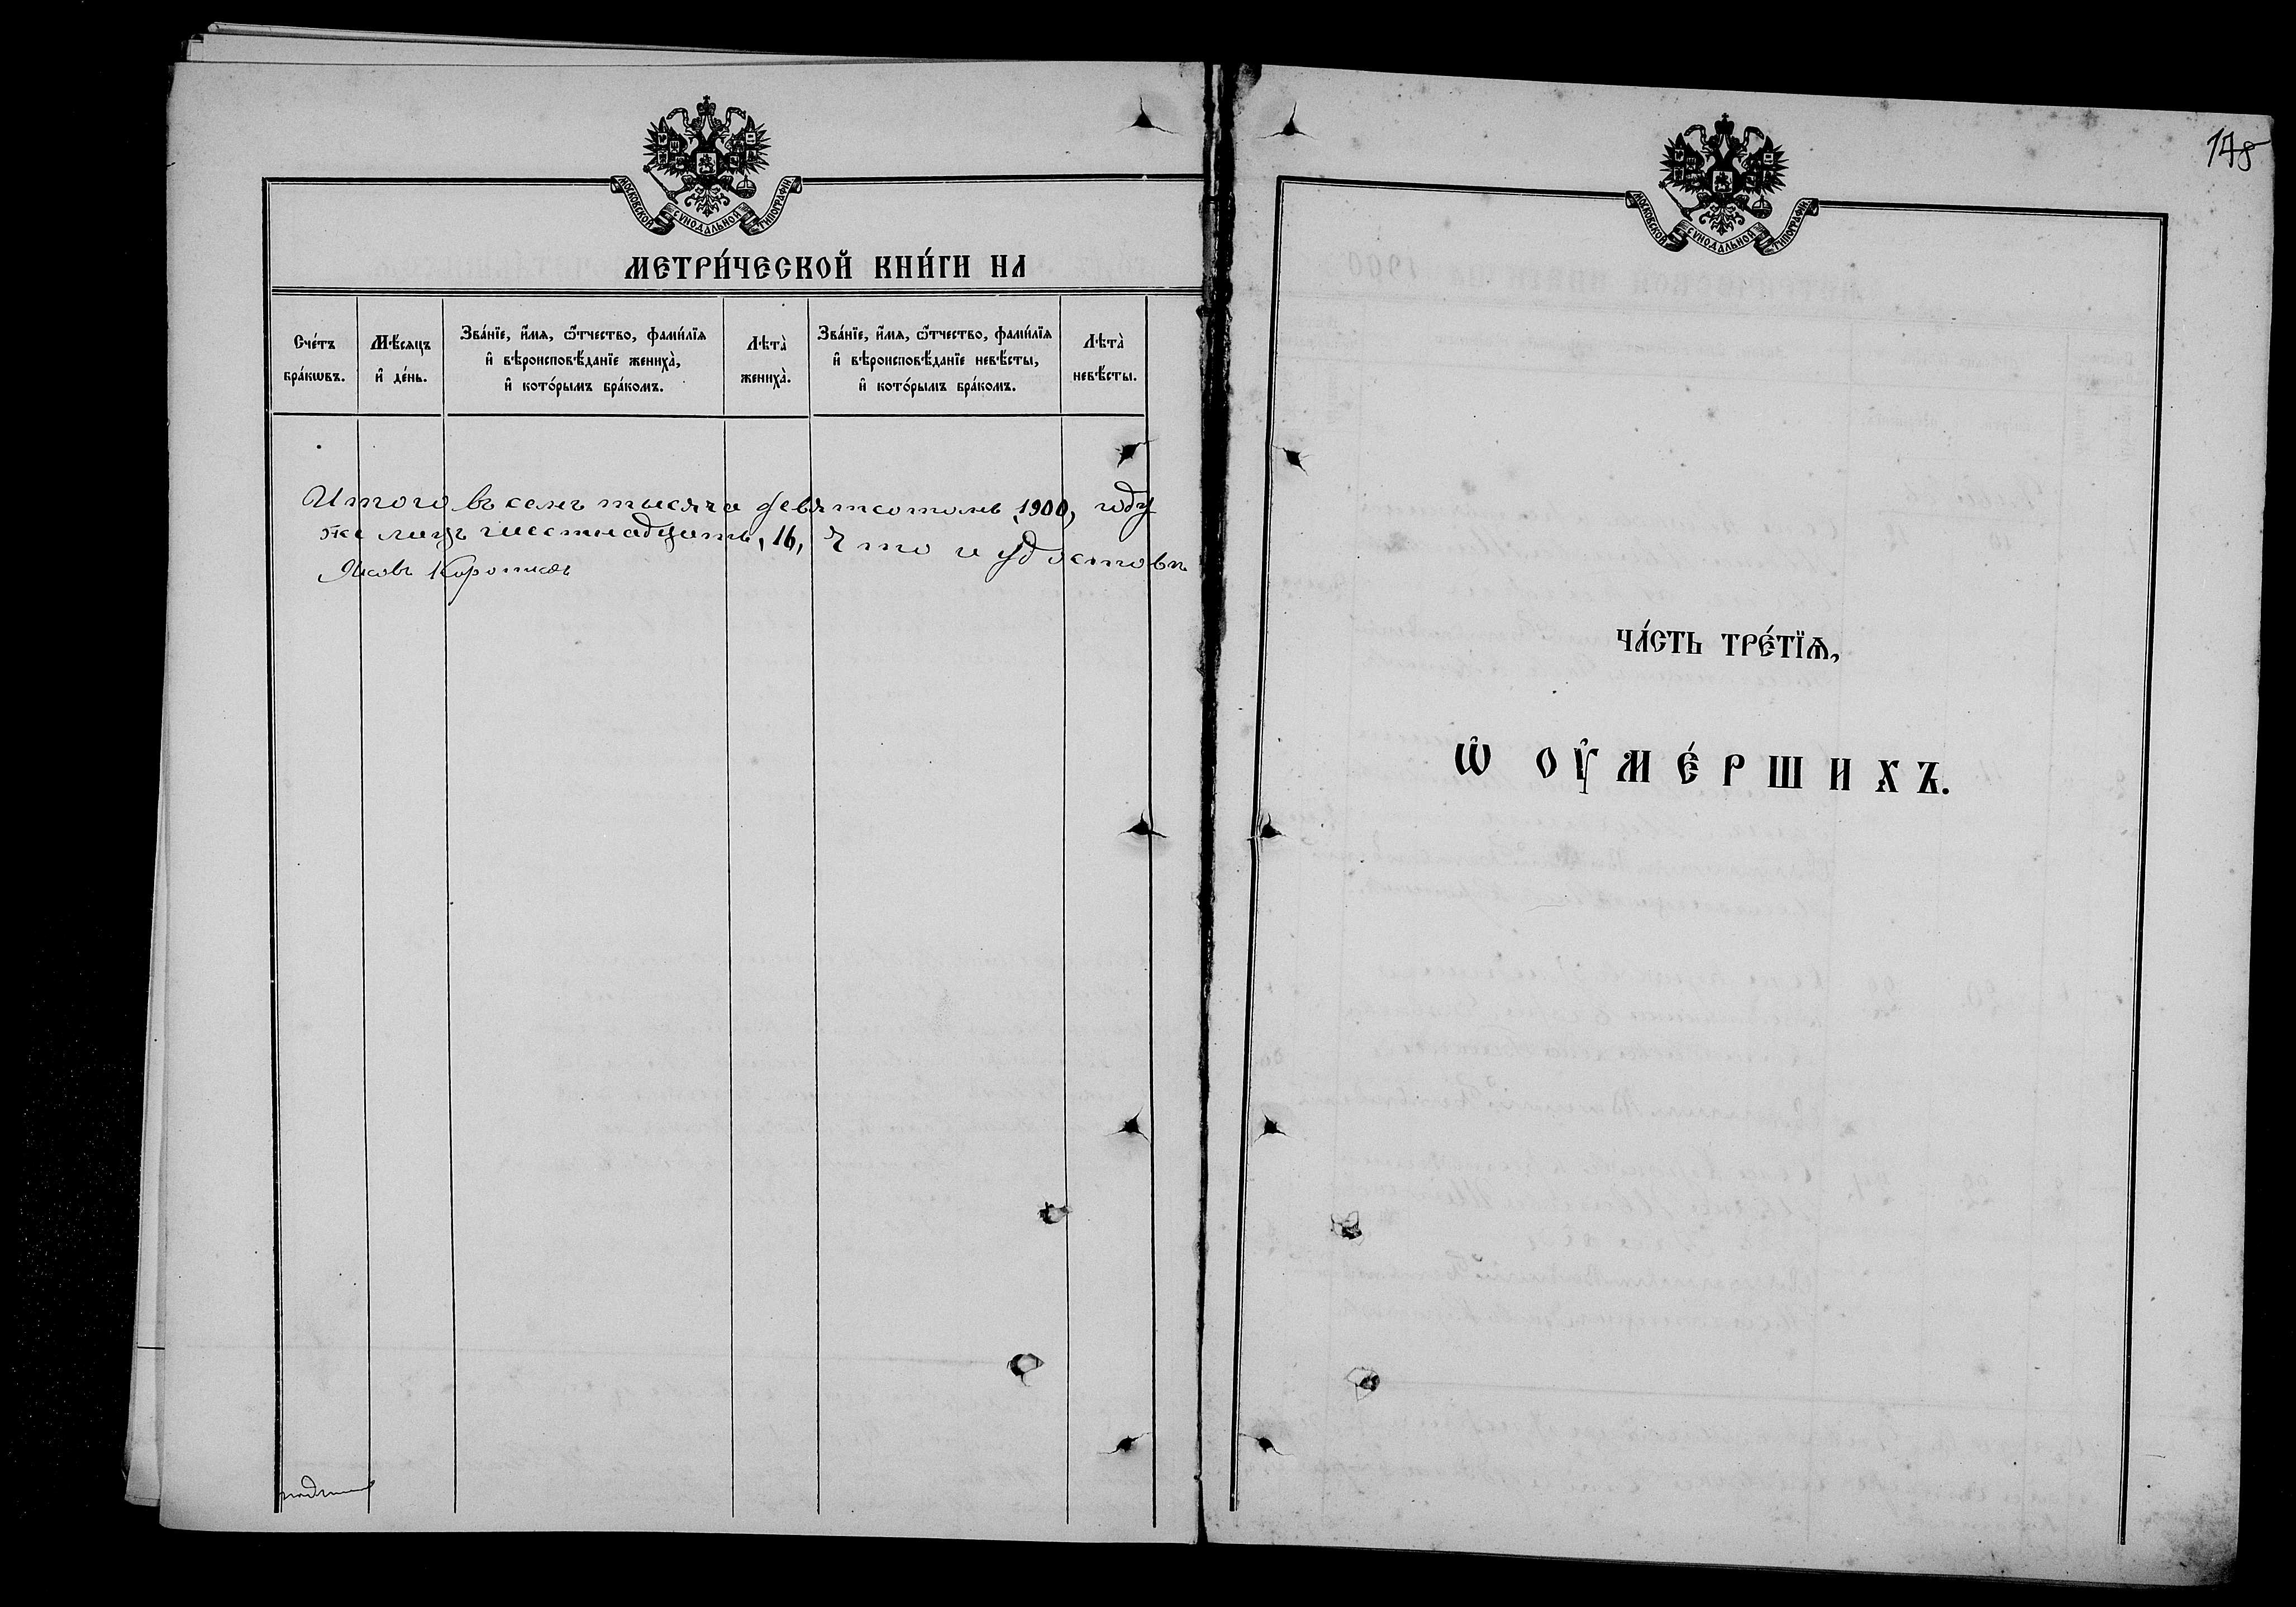 МОСКОВСКОЙ СѴНОДАЛЬНОЙ ТИПОГРАФІИ
МЕТРИ́ЧЕСКОЙ КНИ́ГИ НА
Сче́тъ бра́кѡвъ.
Мѣ́сяцъ и҆ де́нь.
Зва́нїе, и҆́мя, ѻ҆́тчество, фами́лїя
и҆ вѣроисповѣ́данїе жениха̀,
и҆ кото́рымъ бра́комъ.
Лѣта̀ жениха̀.
Зва́нїе, и҆́мя, ѻ҆́тчество, фами́лїя
и҆ вѣроисповѣ́данїе невѣ́сты,
и҆ кото́рымъ бра́комъ.
Лѣта̀ невѣ́сты.
Итого въ семъ тысяча девятсотомъ, 1900, году
же лицъ шестнадцать, 16, Что и удостовѣ
Яковъ
148
МОСКОВСКОЙ СѴНОДАЛЬНОЙ ТИПОГРАФІИ
ЧА́СТЬ ТРЕ́ТЇѦ,
Ѡ҆ ОУ҆МЕ́РШИХЪ.